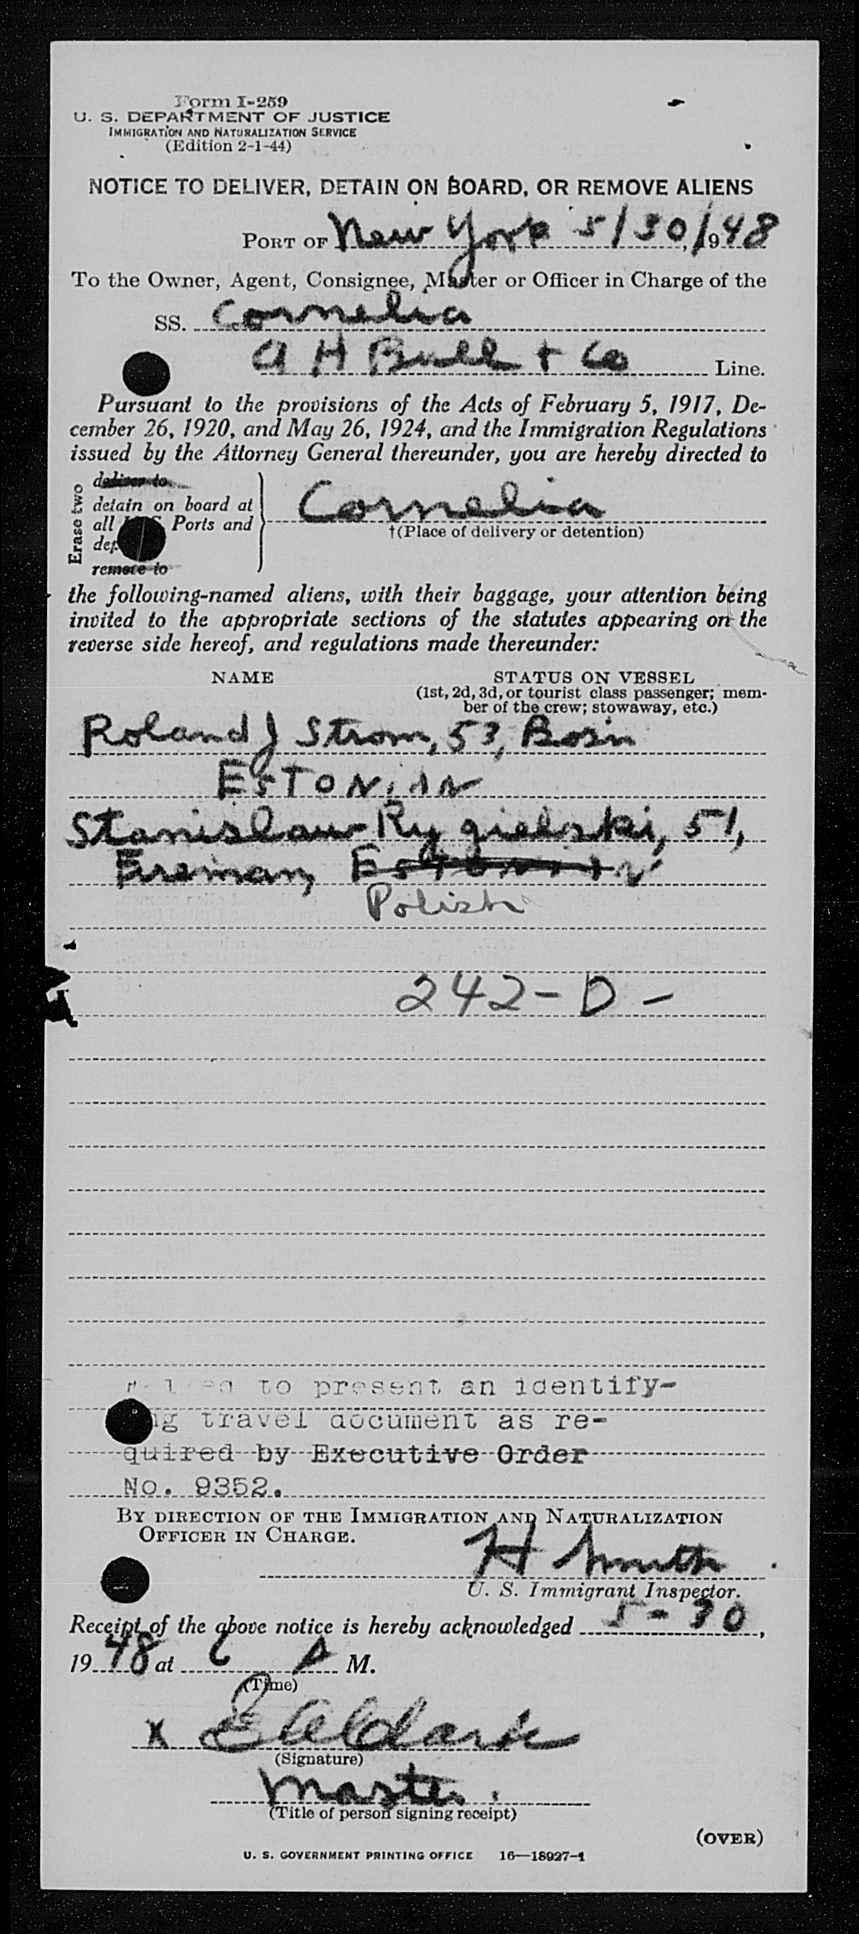 Form I-259
U. S. DEPARTMENT OF JUSTICE
IMMIGRATION AND NATURALIZATION SERVICE
(Edition 2-1-44)
NOTICE TO DELIVER, DETAIN ON BOARD, OR REMOVE ALIENS
PORT OF New York 5/30/, 1948
To the Owner, Agent, Consignee, Master or Officer in Charge of the
SS. Cornelia
A H Bull + Co Line.
Pursuant to the provisions of the Acts of February 5, 1917, De-
cember 26, 1920, and May 26, 1924, and the Immigration Regulations
issued by the Attorney General thereunder, you are hereby directed to
Erase two
deliver to
detain on board at
all Ports and
remove to
Cornelia
†(Place of delivery or detention)
the following-named aliens, with their baggage, your attention being
invited to the appropriate sections of the statutes appearing on the
reverse side hereof, and regulations made thereunder:
NAME STATUS ON VESSEL
(1st, 2d, 3d, or tourist class passenger; mem-
ber of the crew; stowaway, etc.)
Roland J Strom, 53, Bosn
ESTONIAN
Stanislaw Rygielski, 51,
Fireman, Estonian
Polish
242-D-
to present an identify-
travel document as re-
quired by Executive Order
No. 9352.
BY DIRECTION OF THE IMMIGRATION AND NATURALIZATION
OFFICER IN CHARGE.
H Smith
U. S. Immigrant Inspector.
Receipt of the above notice is hereby acknowledged 5-30,
1948 at 6 P M.
(Time)
X
(Signature)
Master.
(Title of person signing receipt)
(OVER)
U. S. GOVERNMENT PRINTING OFFICE 16—18927-1